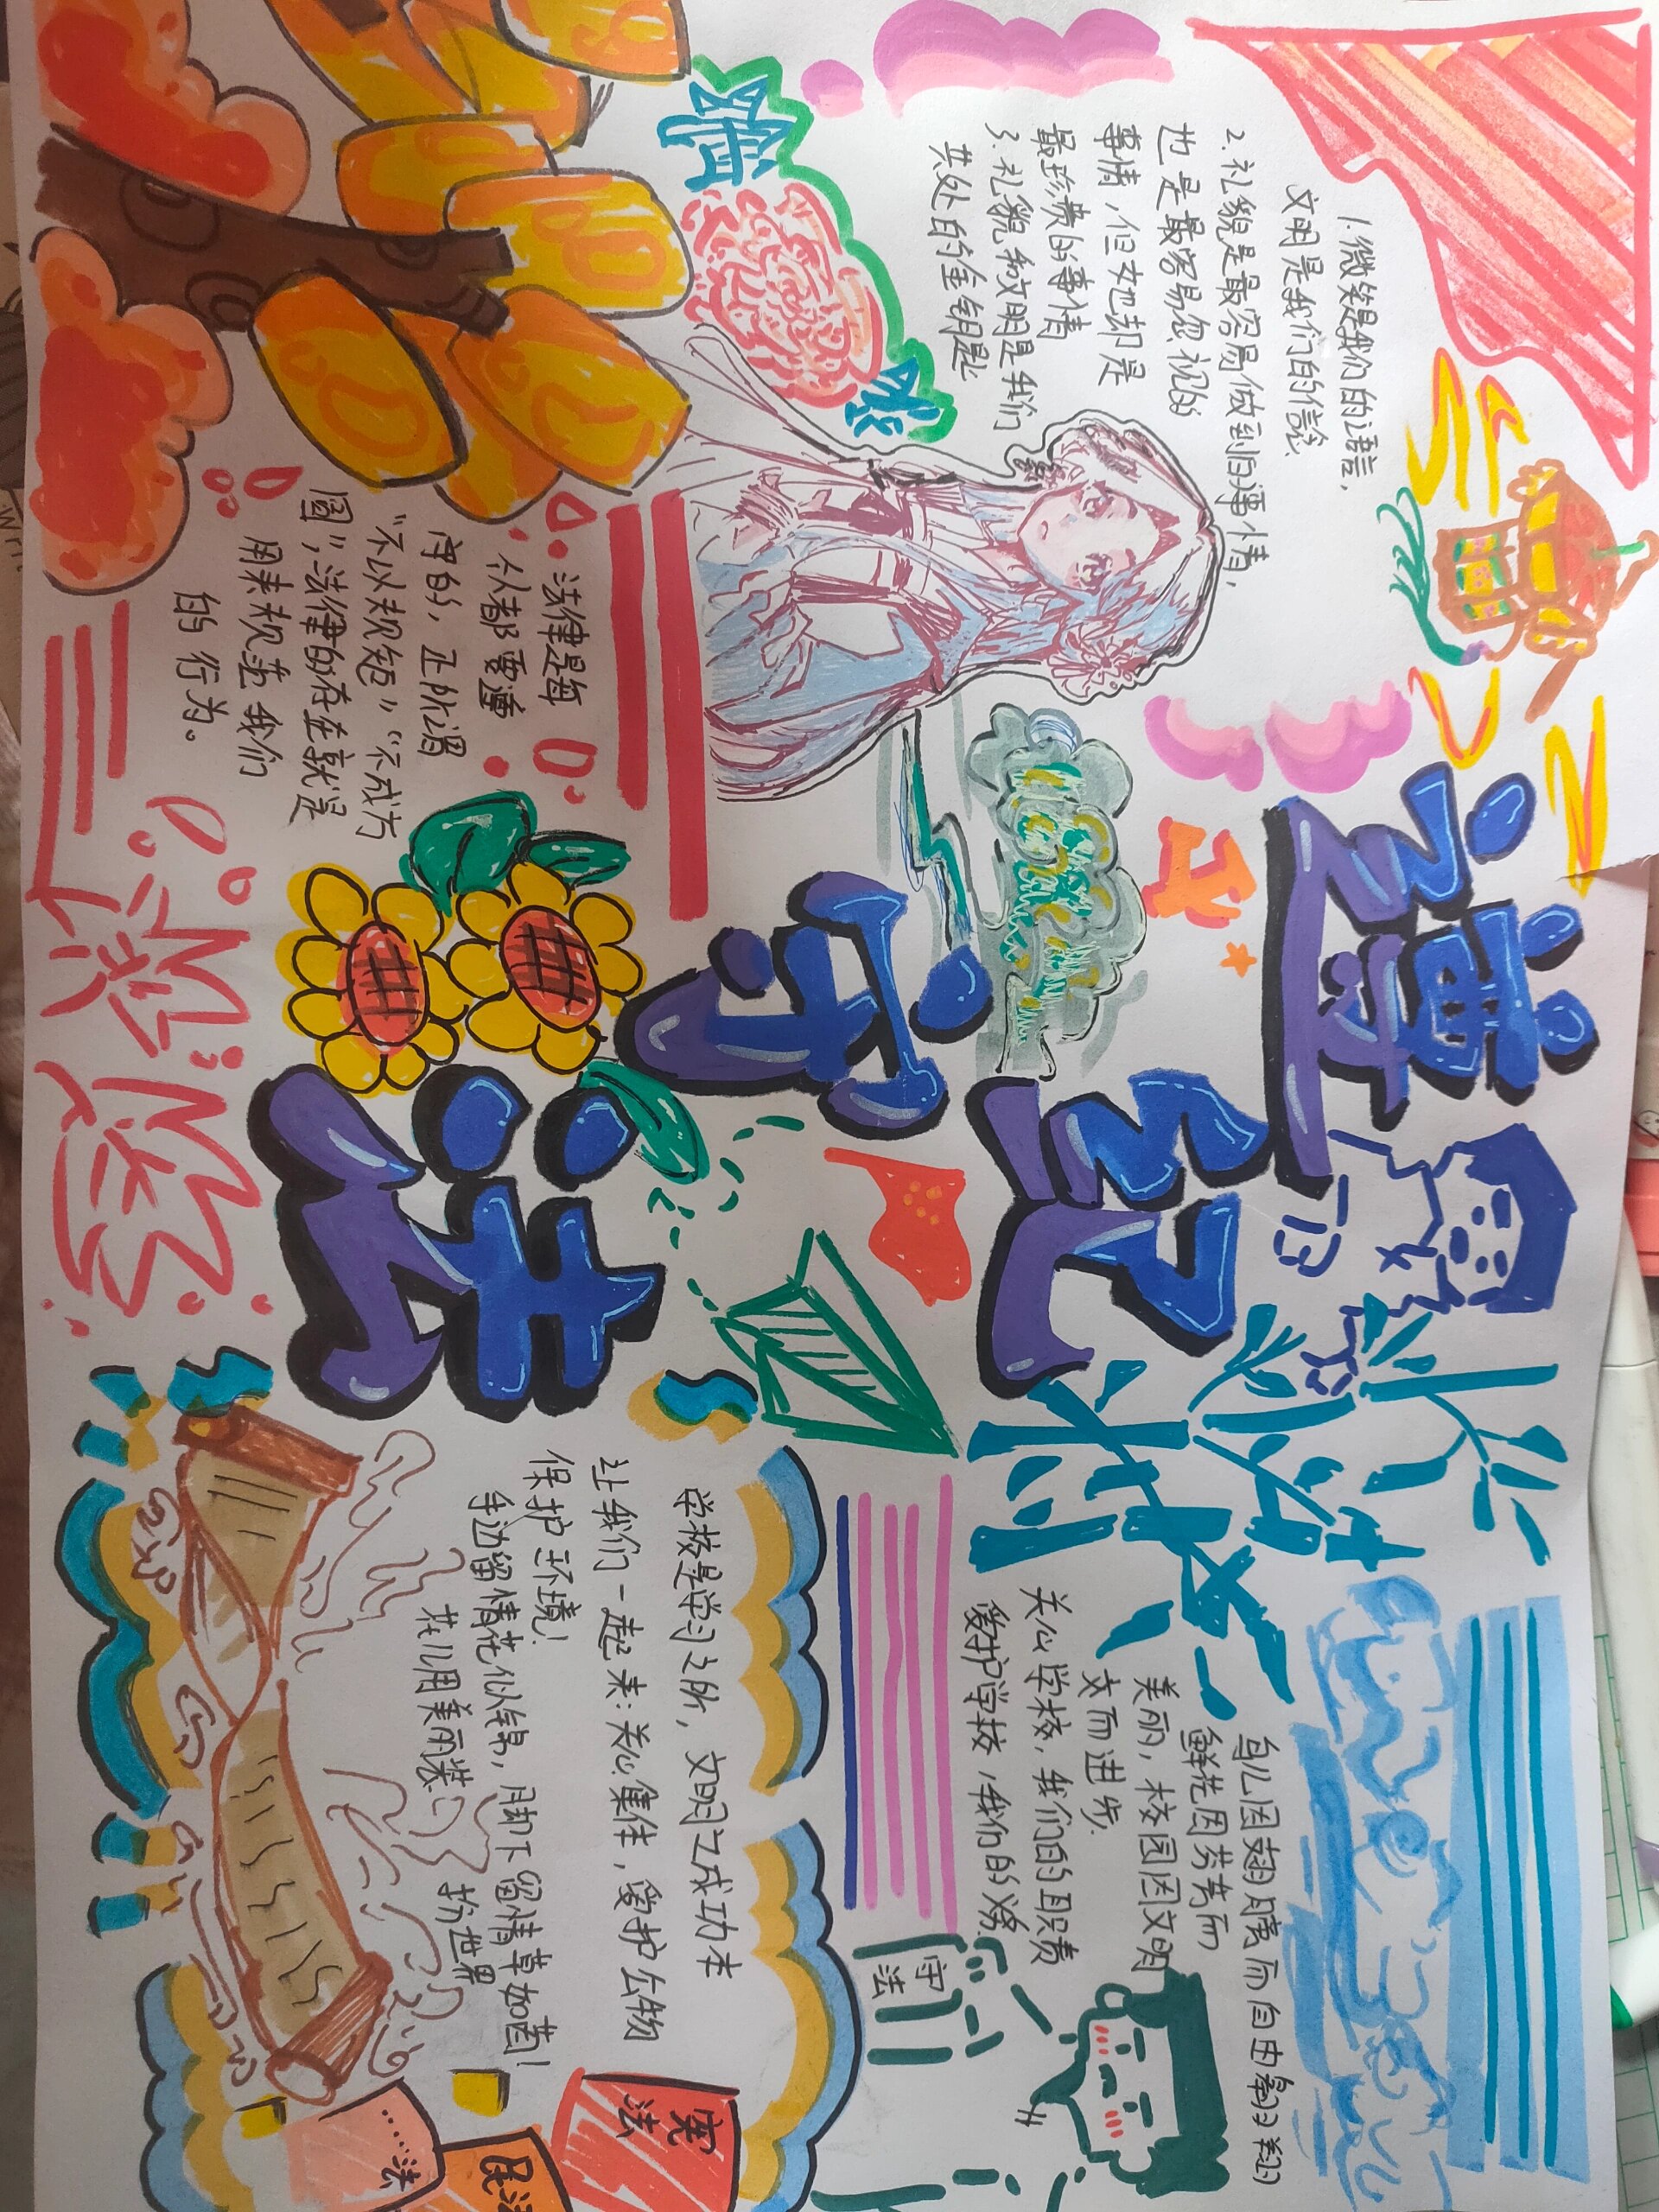 遵守纪法
1.微笑是我们的语言,
文明是我们的信念.
2.礼貌是最容易做到的事情,
也是最容易忽视的
事情,但她却是
最珍贵的事情
3.礼貌和文明是我们
共处的金钥匙
法律是每
个人都要遵
守的,正所谓
“不以规矩”“不成方
圆”,法律的存在就是
用来规范我们
的行为。
鸟儿因翅膀而自由翱翔
鲜花因芬芳而
美丽,校园因文明
而进步.
关心学校,我们的职责
爱护学校,我们的义务.
守
法
学校是学习之所,文明之成功本
让我们一起来:关心集体,爱护公物
保护环境!
手边留情花似锦,脚下留情草如茵!
花儿用美丽装扮世界
宪
法
民法
……法